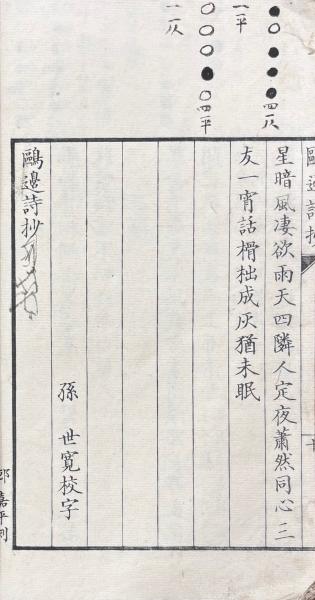 ●○●●●四仄
一平
○○○●○四平
一仄
鷗邊詩抄
星暗風凄欲雨天四隣人定夜蕭然同心三
友一宵話榾柮成灰猶未眠
孫 世寬校字
鷗邊詩抄